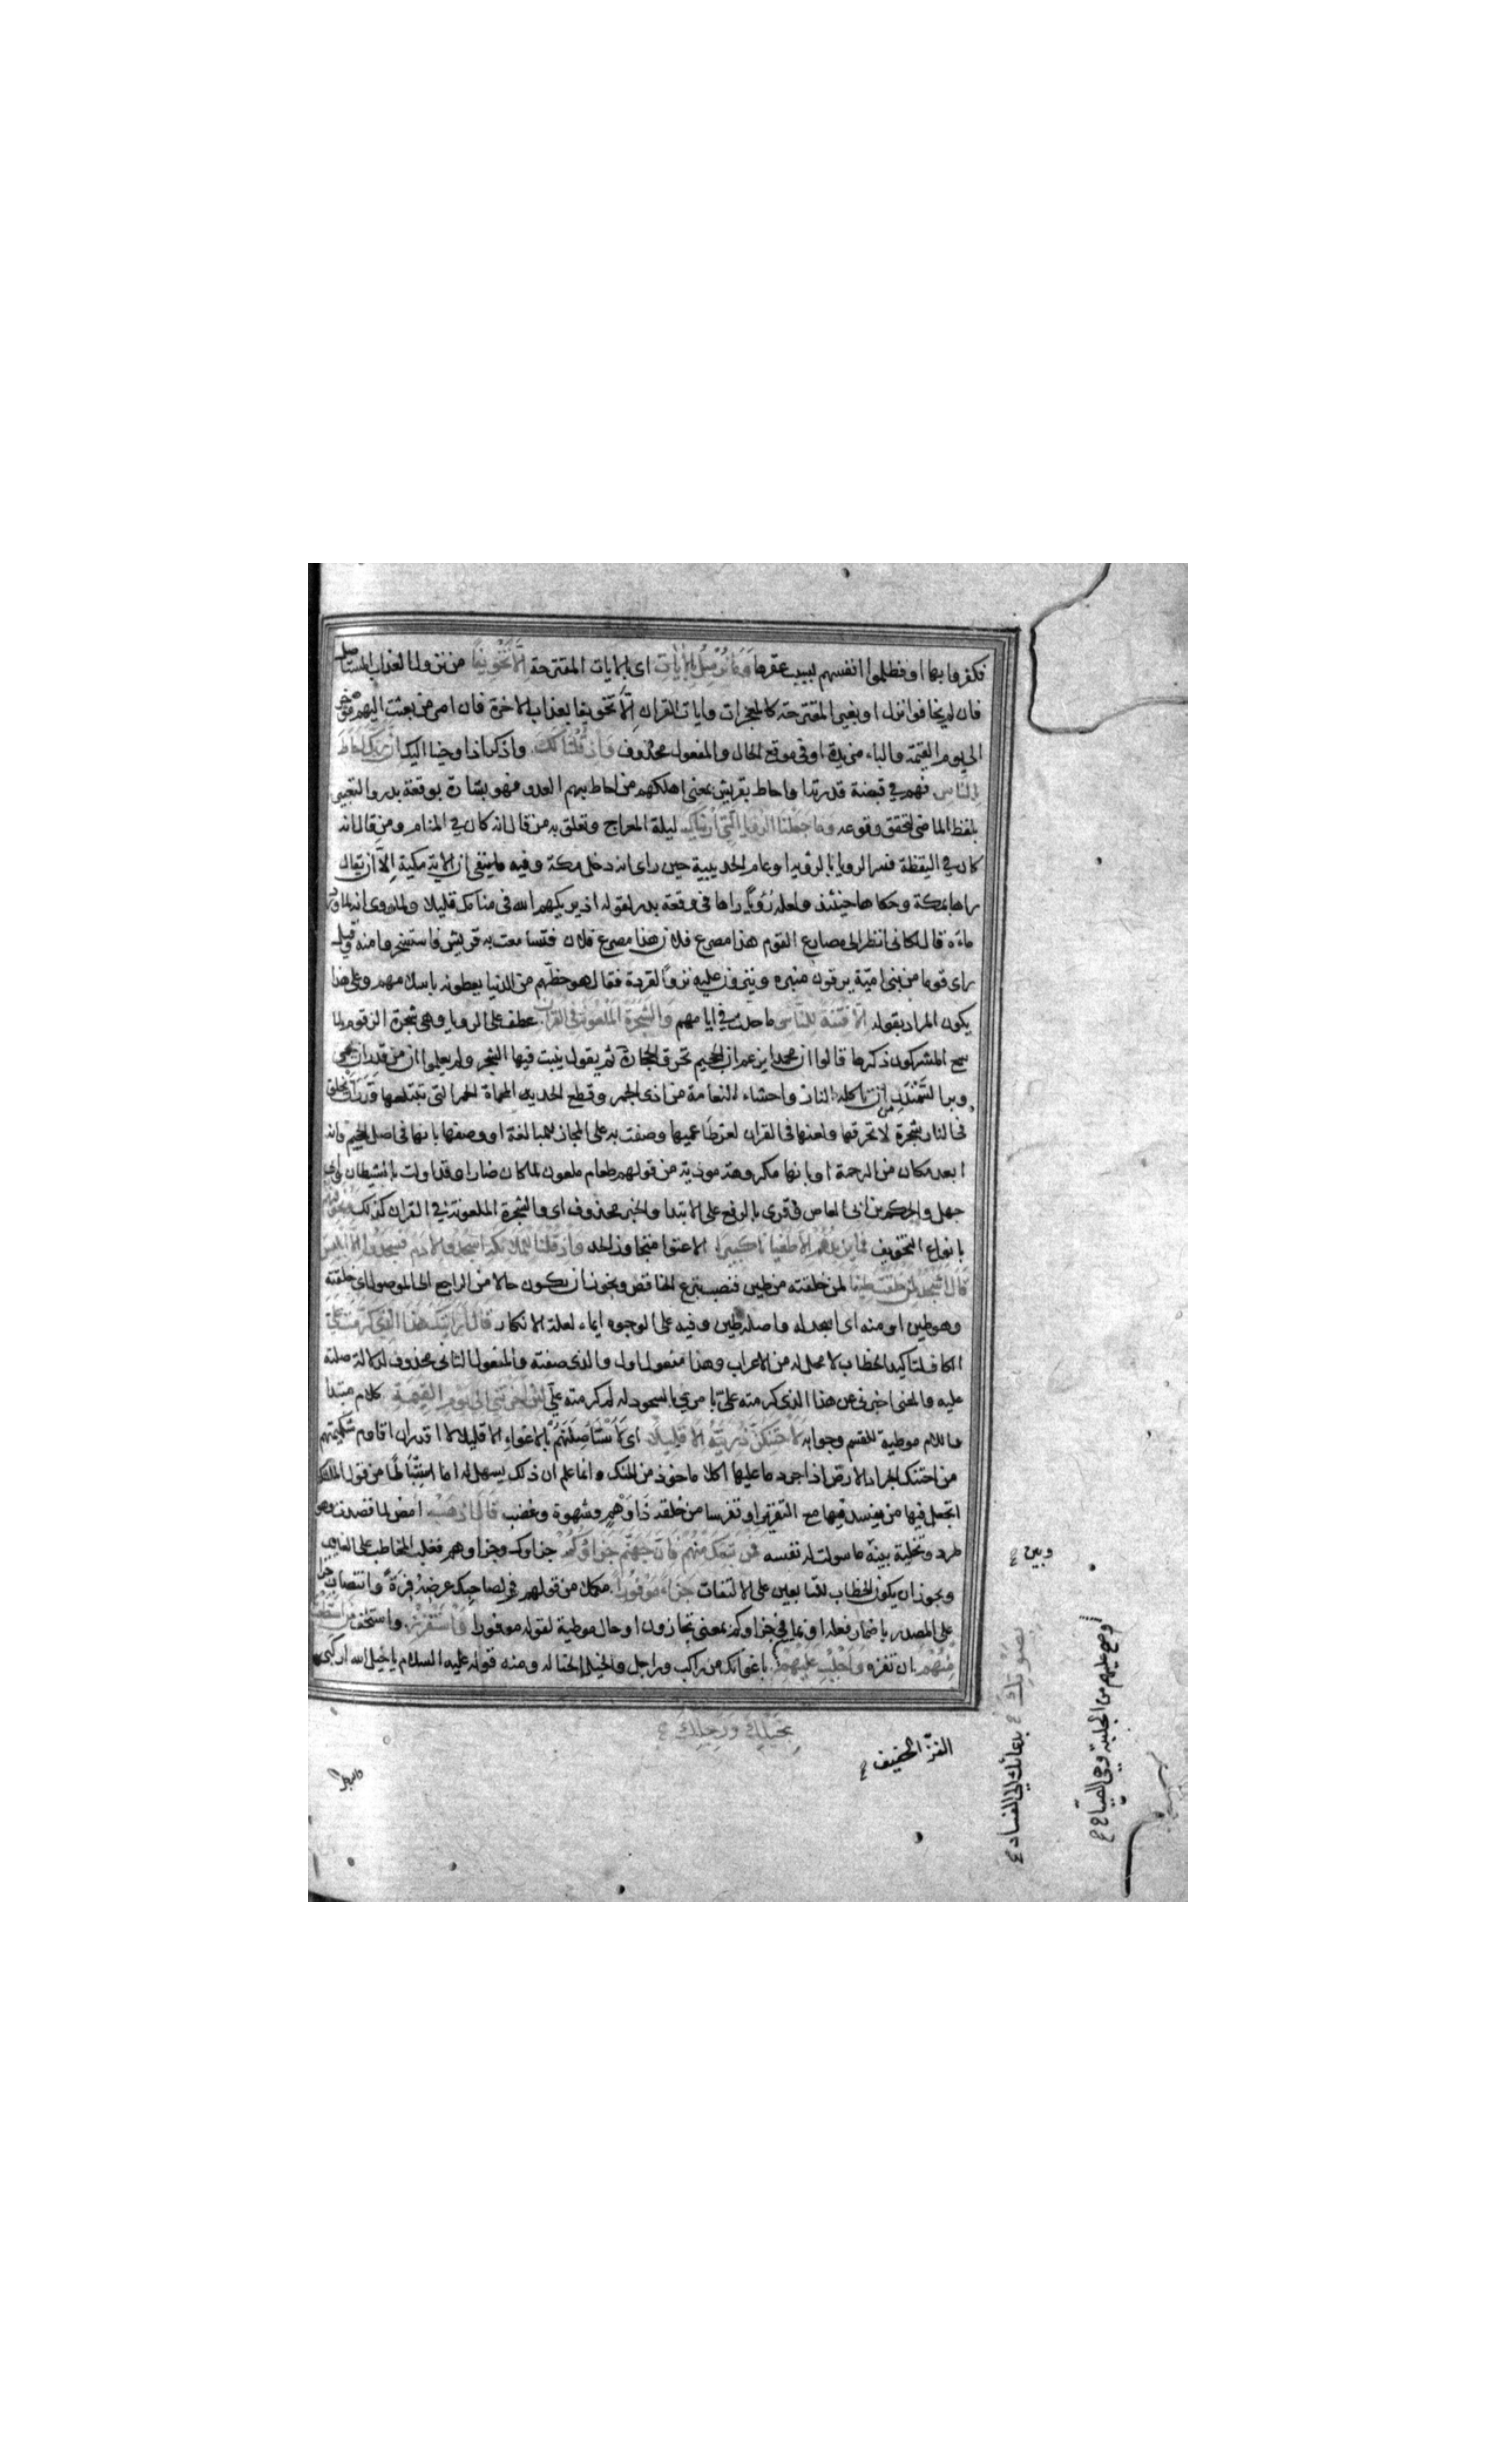 فكفروا بها او فظلموا انفسهم بسبب عقرها وَمَا نُرْسِلُ بِالْآيَاتِ اى بالايات المقترحة اِلَّا تَخْوِيفًا من نزول العذاب المستأصل
فان لم يخافوا نزل او بغير المقترحة كالمعجزات وايات القران اِلَّا تخويفا بعذاب الاخرة فان امر من بعثت اليهم مؤخر
الى يوم القيمة والباء مزيدة او فى موقع الحال والمفعول محذوف وَاِذْ قُلْنَا لَكَ واذكر اذ اوحينا اليك اِنَّ رَبَّكَ اَحَاطَ
بِالنَّاسِ فهم في قبضة قدرته او احاط بقريش بمعنى اهلكهم من احاط بهم العدو فهو بشارة بوقعة بدر والتعبير
بلفظ الماضى لتحقق وقوعه وما جَعَلْنَا الرُّؤيا الَّتِي اَرَيْنَاكَ ليلة المعراج وتعلق به من قال انه كان في المنام ومن قال انه
كان في اليقظة فسر الرويا بالرؤية او عام الحديبية حين راى انه دخل مكة وفيه ان الاية مكية اِلّا ان يقال
راها بمكة وحكاها حينئذ ولعله رُؤيًا راها فى وقعة بدر لقوله اذ يريكهم الله فى منامك قليلا ولما روى انه لما ورد
ماءه قال لكانى انظر الى مصارع القوم هذا مصرع فلان هذا مصرع فلان فتسامعت به قريش فاستسخروا منه وقيل
راى قوما من بنى اميّة يرقون منبره وينزون عليه نزو القردة فقال هو حظّهم من الدنيا يعطونه باسلامهم وعلى هذا
يكون المراد بقوله اِلَّا فِتْنَةً لِلنَّاسِ ما حدث في ايامهم وَالشَّجَرَةَ الْمَلْعُونَةَ فِى الْقُرْآنِ عطف على الرويا وهى شجرة الزقوم لما
سمع المشركون ذكرها قالوا ان محمدا يزعم ان الجحيم تحرق الحجارة ثم يقول ينبت فيها الشجر ولم يعلموا ان من قدر ان يحمى
وبر السَّمَنْدَل من ان تاكله النار واحشاء النعامة من اذى الجمر وقطع الحديد المحماة الحمر التى تبتلعها قَدَرَ ان يخلق
فى النار شجرة لا تحرقها ولعنها فى القران لعن طاعميها وصفت به على المجاز للمبالغة او وصفها بانها فى اصل الجحيم وانه
ابعد مكان من الرحمة او بانها مكروهة موذية من قولهم طعام ملعون لما كان ضارا وقد اولت بالشيطان وابى
جهل والحكم بن ابى العاص وقرى بالرفع على الابتدا والخبر محذوف اى والشجرة الملعونة في القران كذلك وَنُخَوِّفُهُمْ
بانواع التخويف فَمَا يَزِيدُهُمْ اِلَّا طُغْيَانًا كَبِيرًا الا عتوا متجاوز الحد وَاِذْ قُلْنَا لِلْمَلٰئِكَةِ اسْجُدُوا لِآدَمَ فَسَجَدُوا اِلَّا اِبْلِيسَ
قَالَ ءَاَسْجُدُ لِمَنْ خَلَقْتَ طِينًا لمن خلقته من طين فنصب بنزع الخافض ويجوز ان يكون حالا من الراجع الى الموصول اى خلقته
وهو طين او منه اى اسجد له واصله طين وفيه على الوجوه ايماء لعلة الانكار قَالَ اَرَاَيْتَكَ هٰذَا الَّذِي كَرَّمْتَ عَلَيَّ
الكاف لتاكيد الخطاب لا محل له من الاعراب وهذا مفعول اول والذى صفته والمفعول الثانى محذوف لدلالة صلته
عليه والمعنى اخبرنى عن هذا الذى كرمته علىّ بامري بالسجود له لم كرمته علىّ لَئِنْ اَخَّرْتَنِي اِلٰى يَوْمِ الْقِيٰمَةِ كلام مبتدا
واللام موطية للقسم وجوابه لَاَحْتَنِكَنَّ ذُرِّيَّتَهُ اِلَّا قَلِيلًا اى لَاَسْتَاْصِلَنَّهُمْ بالاغواء الا قليلا لا اقدر ان اقاوم شكيمتهم
من احتنك الجراد الارض اذا جرد ما عليها اكلا ماخوذ من الحنك وانما علم ان ذلك يسهل له اما استنباطا من قول الملئكة
اتجعل فيها من يفسد فيها مع التقرير او تفرسا من خلقه ذَا وَهْمٍ وشهوة وغضب قَالَ اذْهَبْ امض لما قصدته وهو
طرد وتخلية بينه ما سولت له نفسه فَمَنْ تَبِعَكَ مِنْهُمْ فَاِنَّ جَهَنَّمَ جَزَاؤُكُمْ جزاوك وجزاوهم فغلب المخاطب على الغايب
ويجوز ان يكون الخطاب للتابعين على الالتفات جَزَاءً مَوْفُورًا مكملا من قولهم فِر لصاحبك عِرضَهُ فِرَةً وانتصاب جزا
على المصدر باضمار فعله او بما في جزاوكم بمعنى تجازون او حال موطية لقوله موفورا وَاسْتَفْزِزْ واستخف مَنِ اسْتَطَعْتَ
مِنْهُمْ ان تفزه وَاَجْلِبْ عَلَيْهِمْ باغوائك من راكب وراجل والخيل الخيالة ومنه قوله عليه السلام يا خيل الله اركبى
بِخَيْلِكَ وَرَجِلِكَ
الفزّ الخفيف
وبين
بِصَوْتِكَ بدعائك الى الفساد
وصح عليهم من الجلبة وهي الصياح